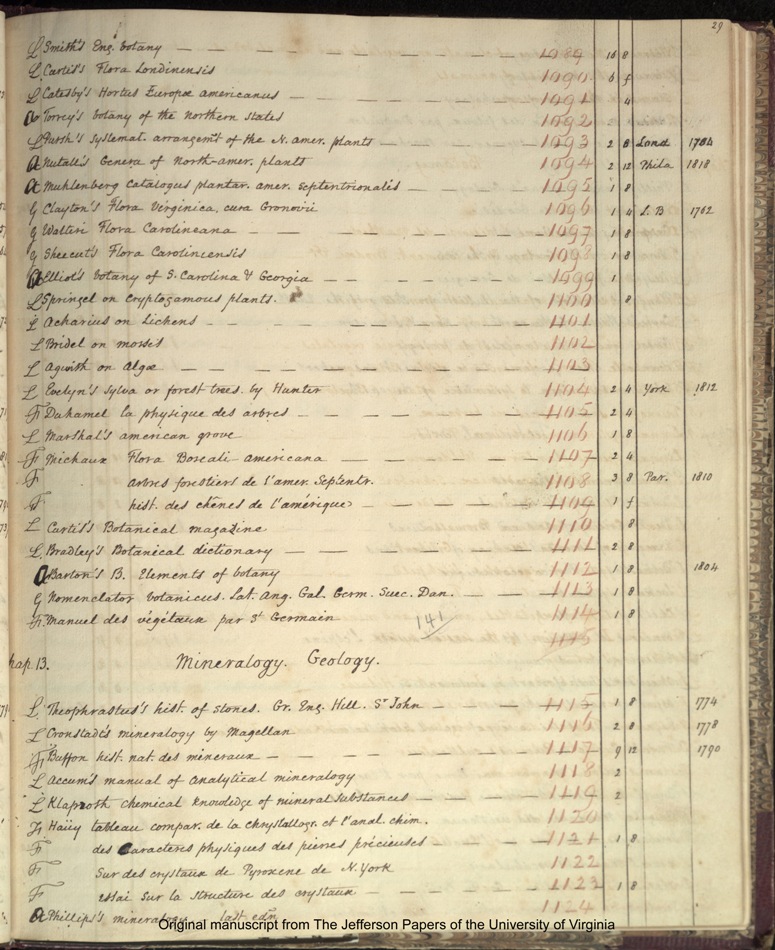 29
L Smith's Eng. botany — — — — — — — 1089 16 8
L Curtis's Flora Londinensis 1090. 6 f
L Catesby's Hortus Europæ americanus — — — — — 1091 4
a Torrey's botany of the northern states 1092
L Pursh's systemat. arrangemt of the N. amer. plants — — — 1093 2 8 Lond 1784
a Nutall's Genera of North-amer. plants 1094 2 12 Phila 1818
a Muhlenberg Catalogus plantar. amer. septentrionalis — — — 1095 1 8
G Clayton's Flora Virginica. cura Gronovii 1096 1 4 L.B 1762
G Walteri Flora Carolineana — — — — — — 1097 1 8
G Sheecut's Flora Carolinienensis 1098 1 8
a Elliot's botany of S. Carolina & Georgia — — — — 1099 1
L Springel on cryptogamous plants. 1100 8
L Acharius on Lichens — — — — — — — 1101
L Bridel on mosses 1102
L Agwith on Algæ — — — — — — — 1103
L Evelyn's sylva or forest trees. by Hunter 1104 2 4 York 1812
Fr Duhamel la physique des arbres — — — — — 1105 2 4
L Marshal's american grove 1106 1 8
Fr Michaux Flora Boreali-americana — — — — 1107 2 4
Fr arbres forestiers de l'amer. Septentr. 1108 3 8 Par. 1810
Fr hist. des chênes de l'amérique — — — 1109 1 f
L Curtis's Botanical magazine 1110 8
L Bradley's Botanical dictionary — — — — — 1111 2 8
a Barton's B. Elements of botany 1112 1 8 1804
G Nomenclator botanicus. Lat. Ang. Gal. Germ. Suec. Dan. — — 1113 1 8
Fr. Manuel des végétaux par St Germain 1114 1 8
141
1115
hap. 13. Mineralogy. Geology.
L. Theophrastus's hist. of stones. Gr. Eng. Hill. St John — — — 1115 1 8 1774
L Cronstadt's mineralogy by Magellan 1116 2 8 1778
Fr Buffon hist. nat. des mineraux — — — — — 1117 9 12 1790
L Accum's manual of analytical mineralogy 1118 2
L Klaproth chemical knowledge of mineral substances — — — 1119 2
Fr Haüy tableau compar. de la chrystallogr. et l'anal. chim. 1120
Fr des Caracteres physiques des pierres précieuses — — — 1121 1 8
Fr Sur des crystaux de Pyroxene de N. York 1122
Fr essai sur la structure des crystaux — — — 1123 1 8
a Phillips's mineralogy last edn 1124
Original manuscript from The Jefferson Papers of the University of Virginia